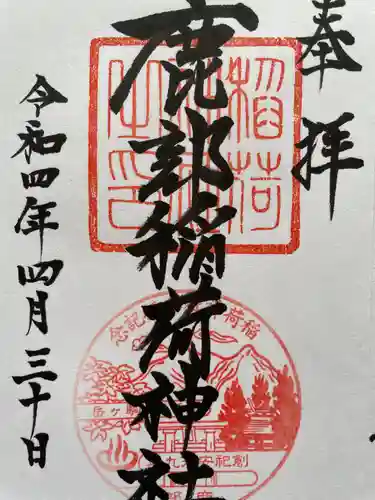 奉拝
鹿部稲荷神社
令和四年四月三十日
稲荷
記念